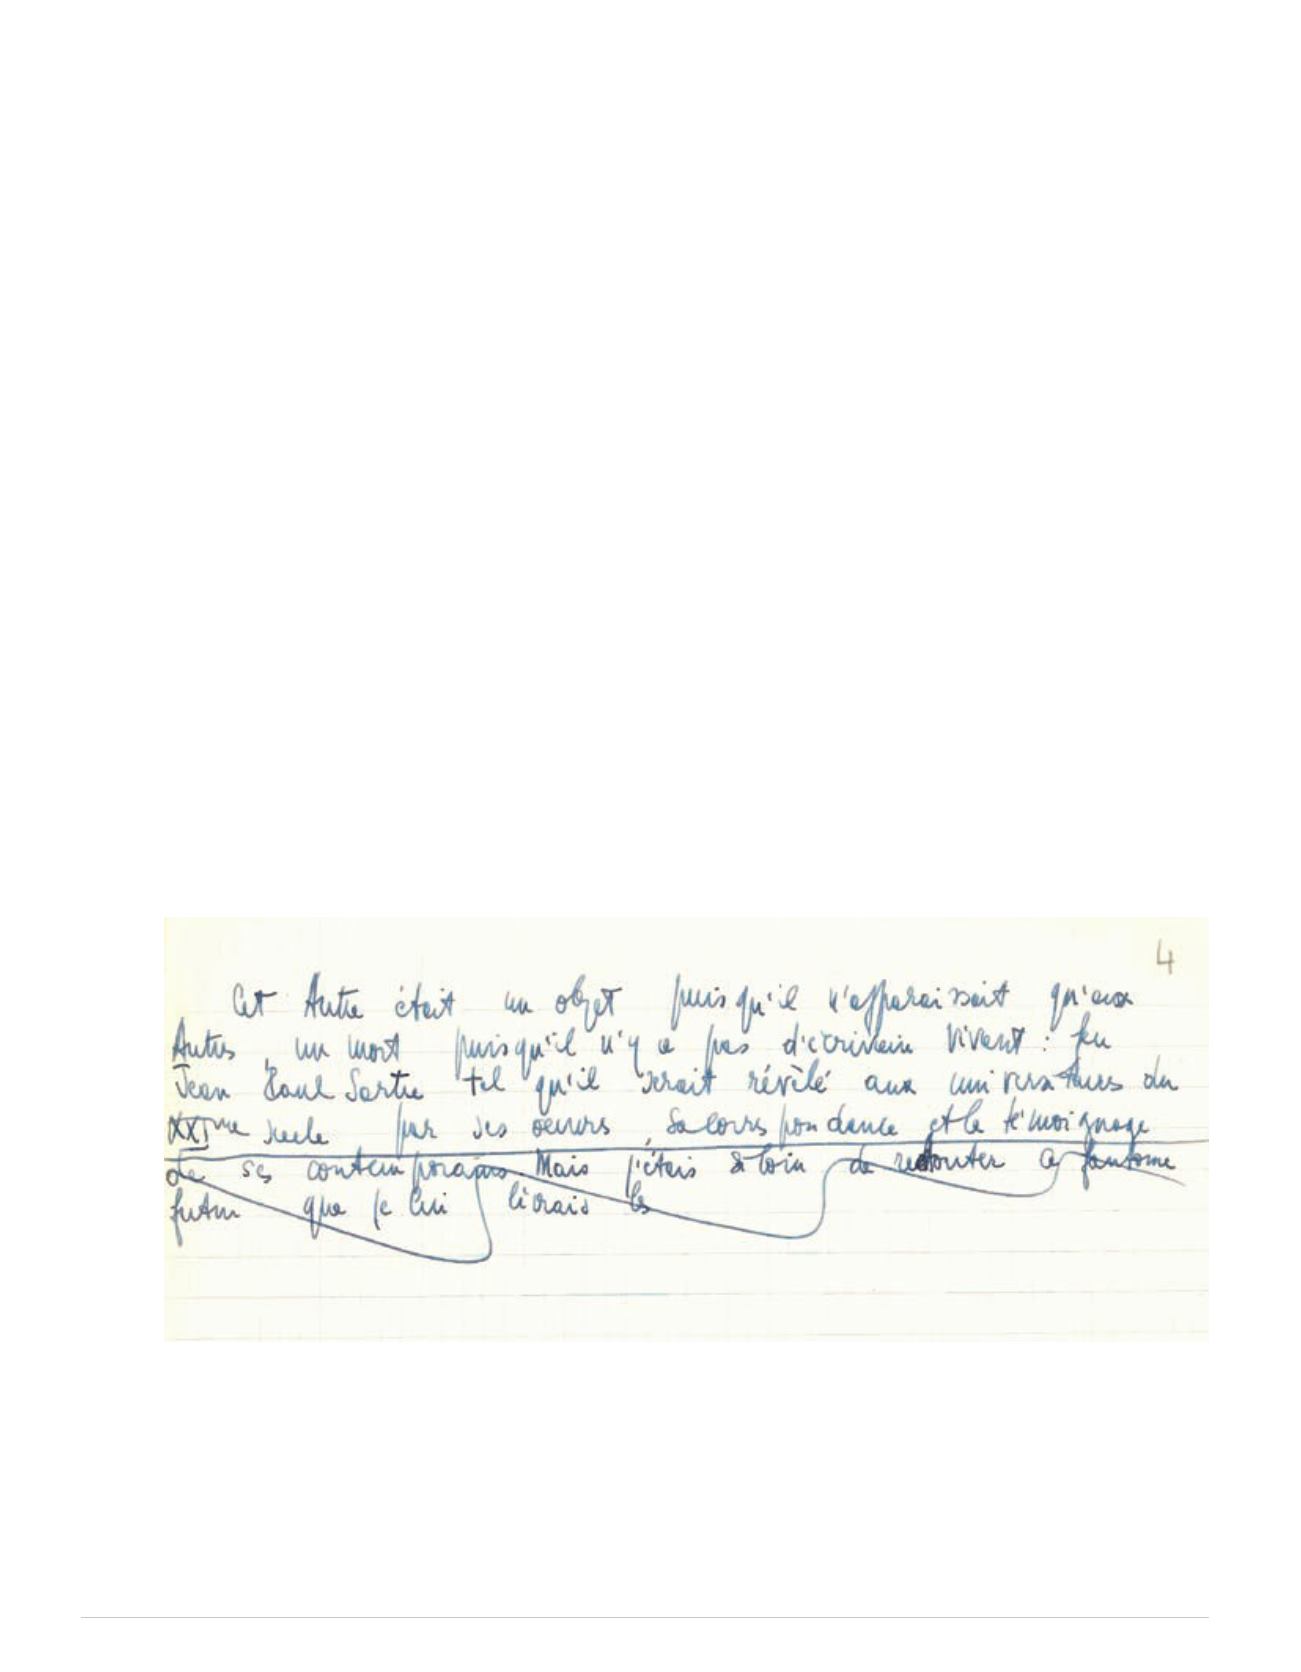 4
Cet Autre était un objet puisqu'il n'apparaissait qu'aux
Autres, un mort puisqu'il n'y a pas d'écrivain vivant : feu
Jean Paul Sartre tel qu'il serait révélé aux universitaires du
XXIme siecle par ses oeuvres, sa correspondance et le témoignage
de ses contemporains. Mais j'étais si loin de redouter ce fantome
futur que je lui livrais les